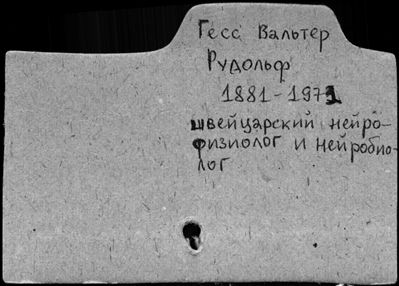 Гесс Вальтер
Рудольф
1881-1973
швейцарский нейро-
физиолог и нейробио-
лог